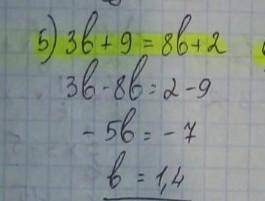 5) 3b + 9 = 8b + 2
3b - 8b = 2 - 9
- 5b = - 7
b = 1,4